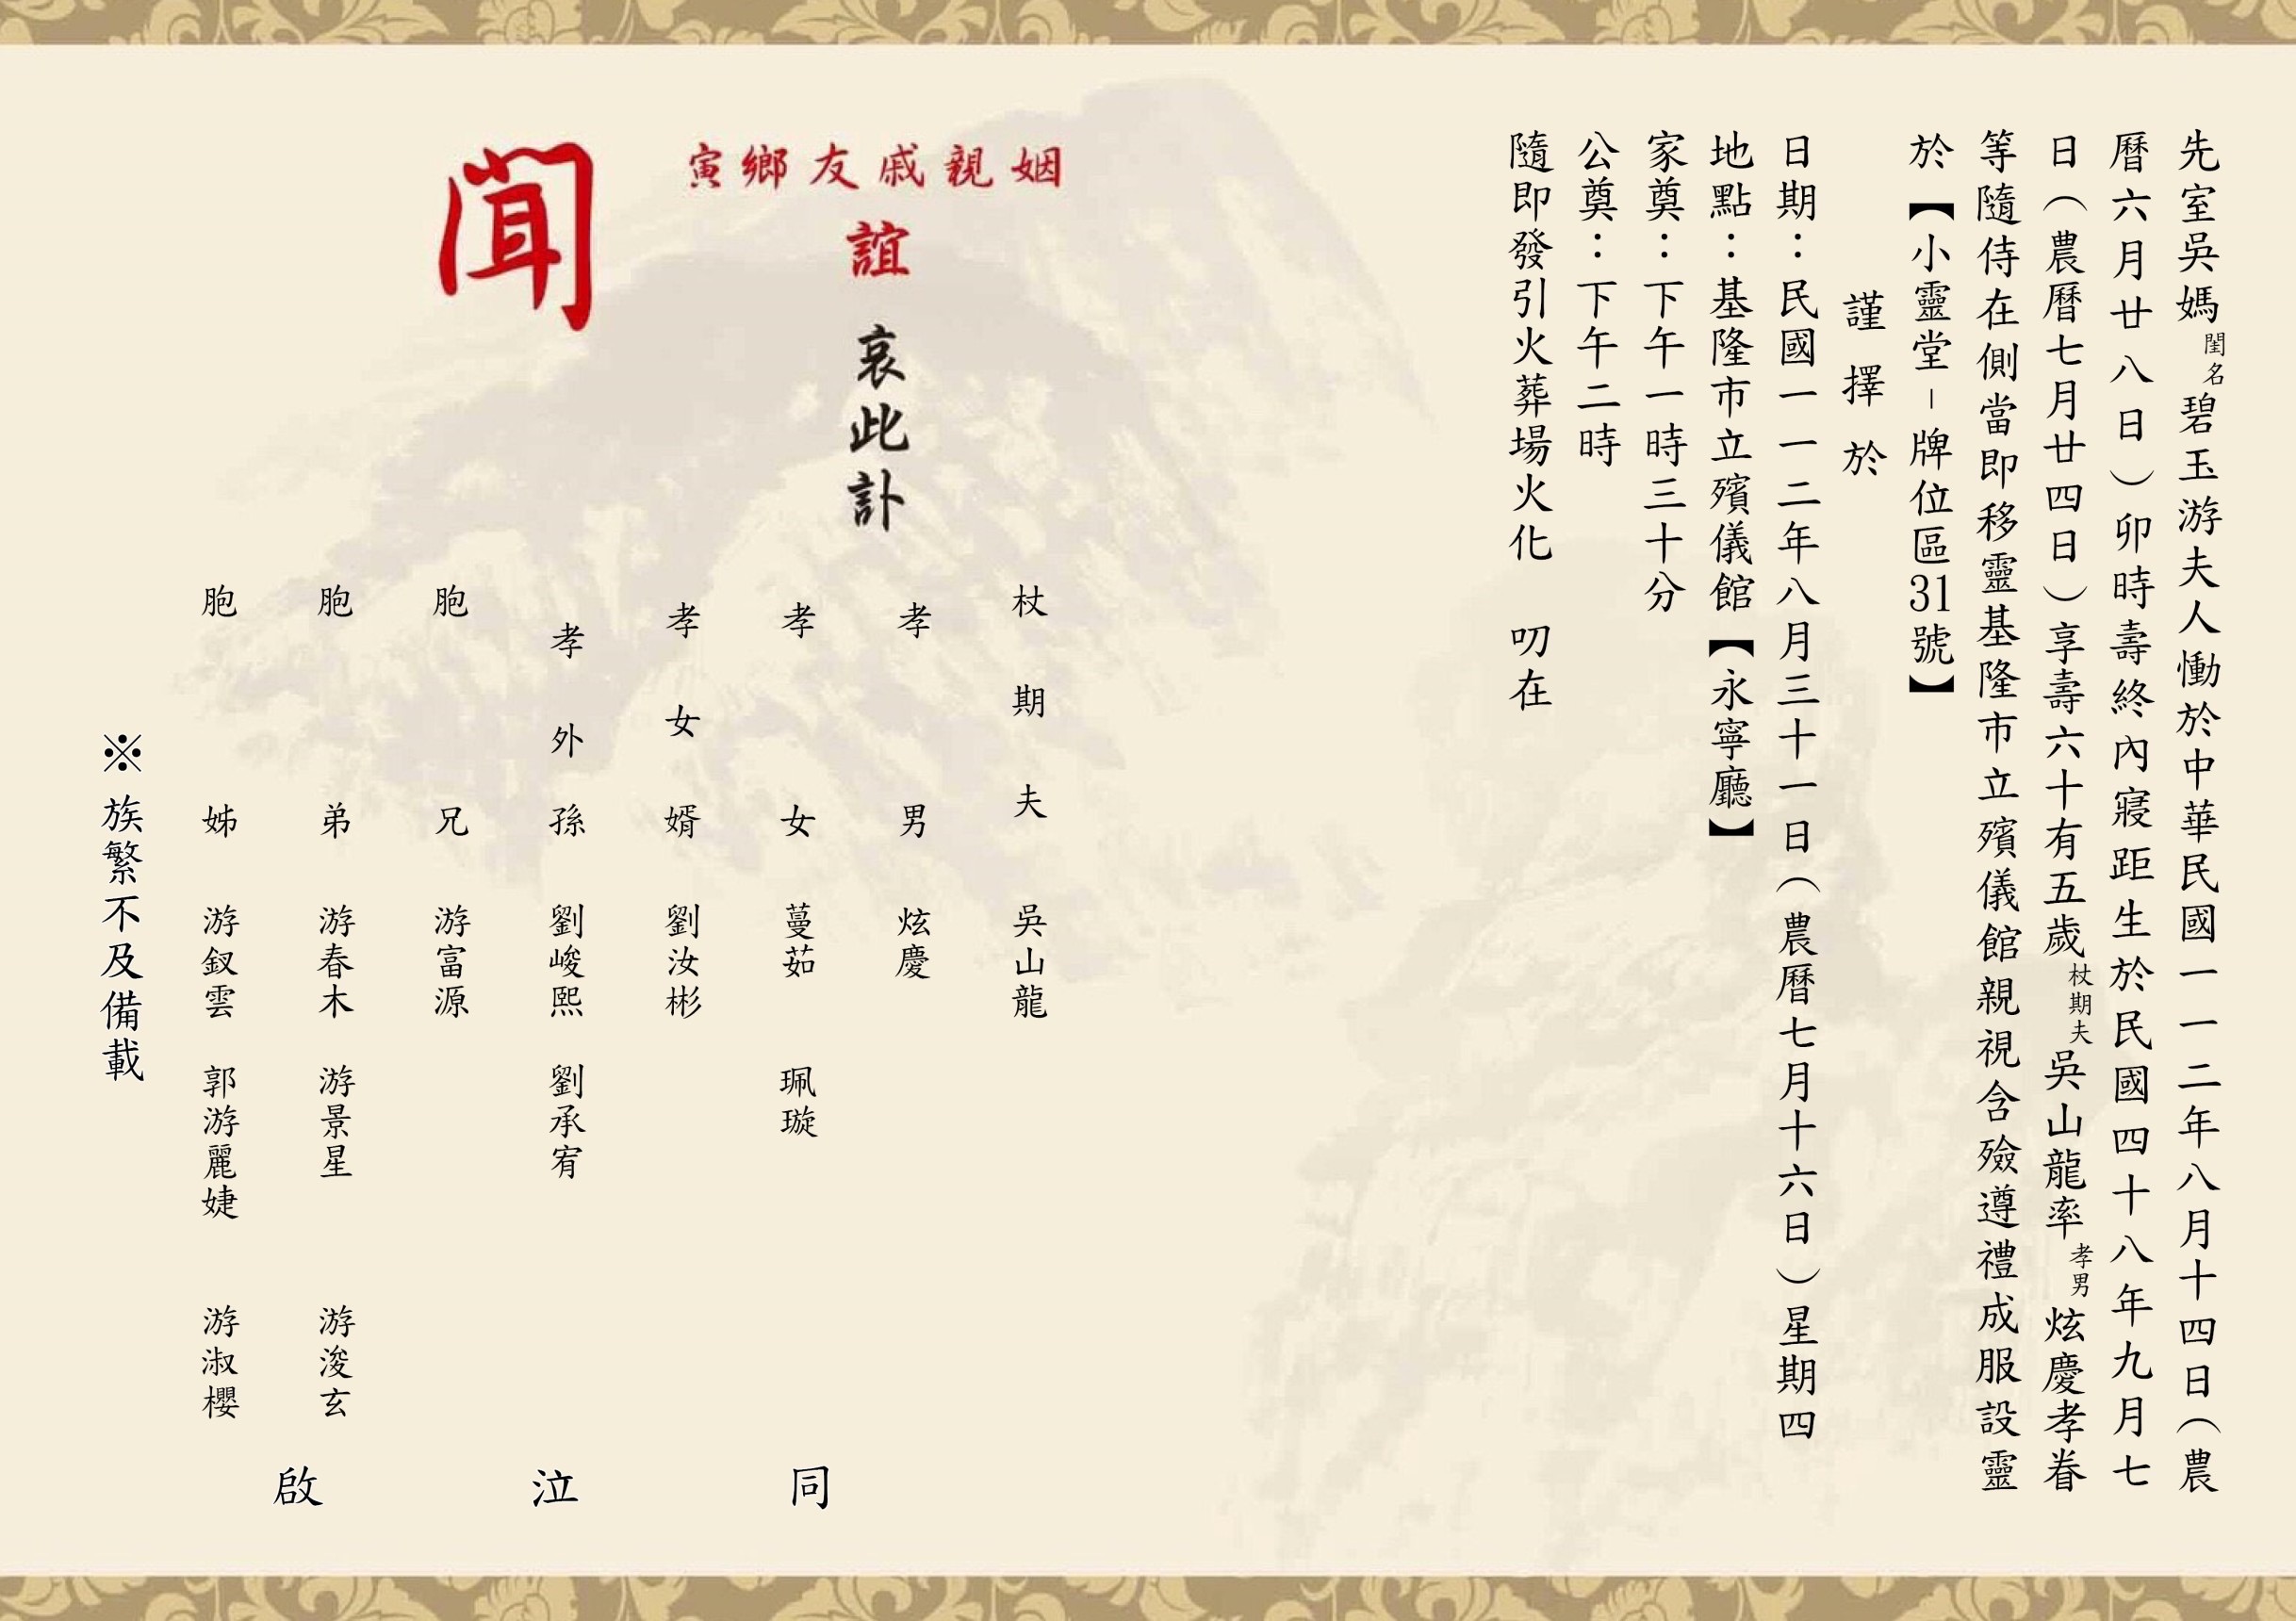 先室吳媽閨名碧玉游夫人慟於中華民國一一二年八月十四日（農
曆六月廿八日）卯時壽終內寢距生於民國四十八年九月七
日（農曆七月廿四日）享壽六十有五歲杖期夫吳山龍率孝男炫慶孝眷
等隨侍在側當即移靈基隆市立殯儀館親視含殮遵禮成服設靈
於【小靈堂-牌位區31號】
謹擇於
日期：民國一一二年八月三十一日（農曆七月十六日）星期四
地點：基隆市立殯儀館【永寧廳】
家奠：下午一時三十分
公奠：下午二時
隨即發引火葬場火化　叨在
姻親戚友鄉寅
誼哀此訃
聞
杖期夫 吳山龍
孝男 炫慶
孝女 蔓茹 珮璇
孝女婿 劉汝彬
孝外孫 劉峻熙 劉承宥
胞兄 游富源
胞弟 游春木 游景星 游浚玄
胞姊 游釵雲 郭游麗婕 游淑櫻
同泣啟
※族繁不及備載